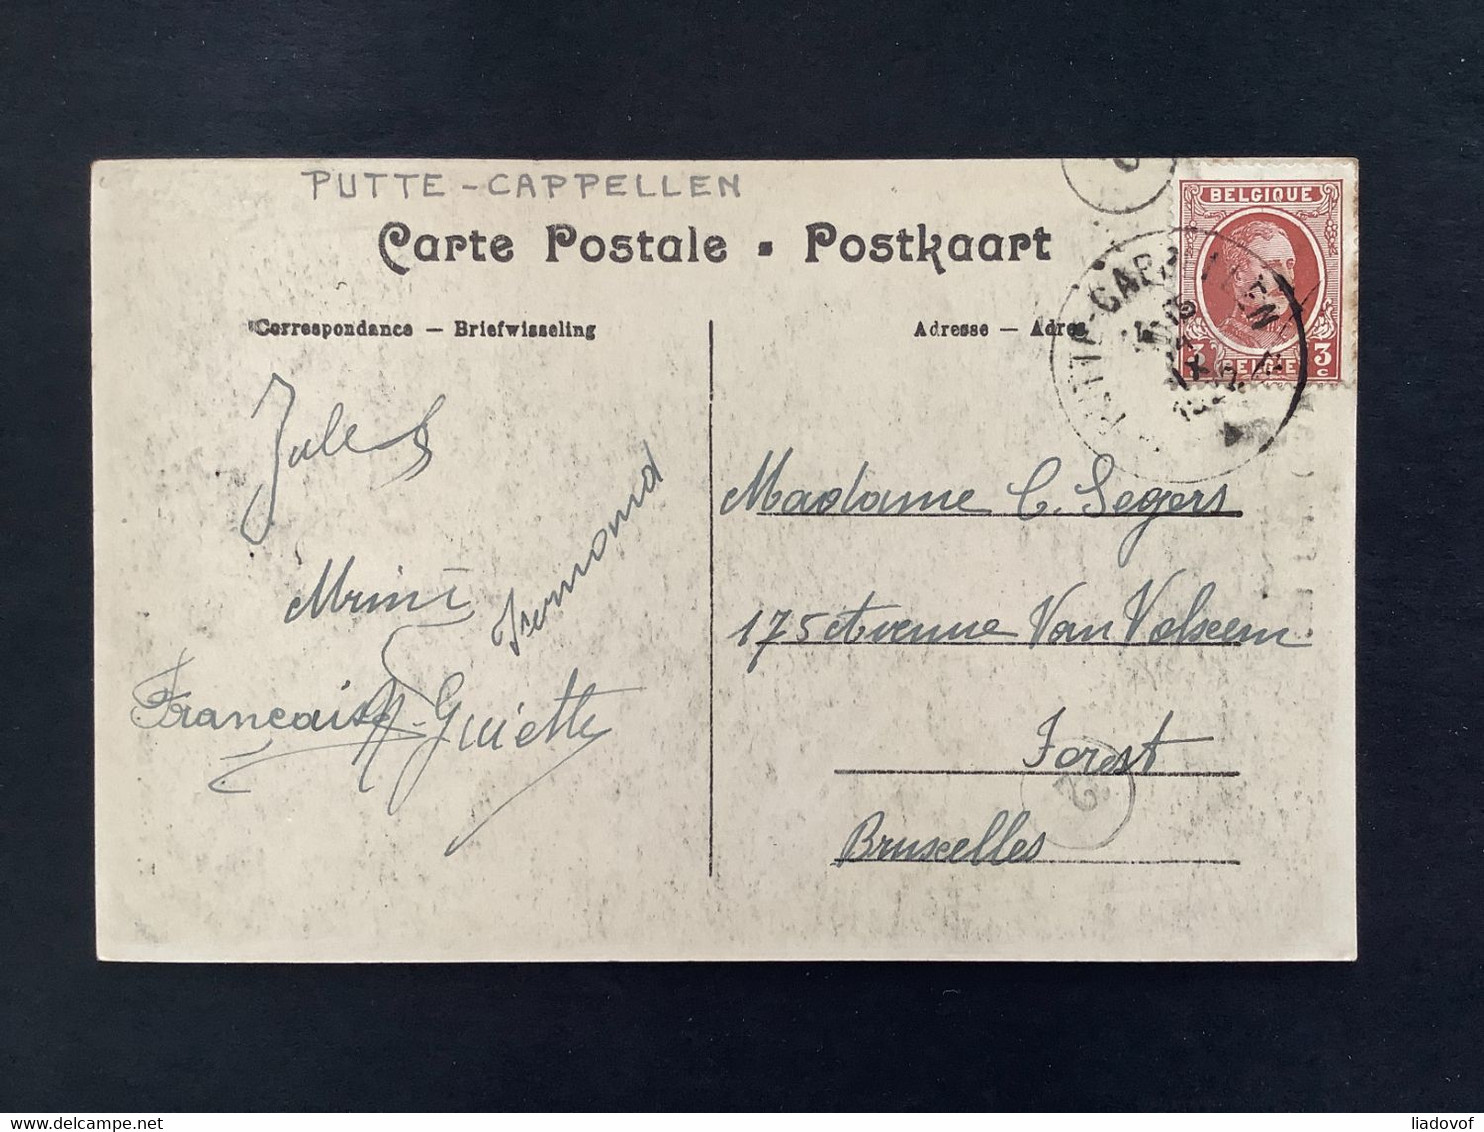 PUTTE - CAPPELLEN
Carte Postale - Postkaart
Correspondance — Briefwisseling
Adresse — Adres
BELGIQUE
3 3
BELGIE C
PUTTE-CAPPELLEN
Jules
Mimi
Fernand
Française
Guiette
Madame C. Segers
175 Avenue Van Volxem
Forest
Bruxelles
2
delcampe.net
liadovof